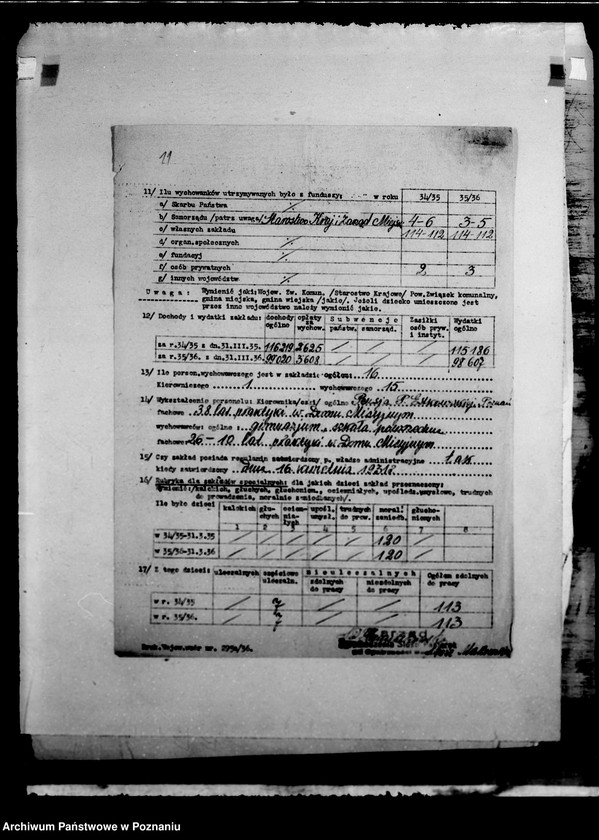 11
11/ Ilu wychowanków utrzymywanych było z funduszy: w roku 34/35 35/36
a/ Skarbu Państwa
b/ Samorządu /patrz uwaga/ Starostwo Kraj. i Zarząd Miejski 4-6 3-5
c/ własnych zakładu 114-112 114-112
d/ organ.społecznych
e/ fundacyj
f/ osób prywatnych 2. 3
g/ innych województw
Uwaga: Wymienić jaki: Wojew. Zw. Komun. /Starostwo Krajowe/ Pow.Związek komunalny,
gmina miejska, gmina wiejska /jakie/. Jeżeli dziecko umieszczone jest
przez inne województwo należy wymienić jakie.
12/ Dochody i wydatki zakładu: dochody ogólno opłaty za wychow. Subwencje państw. samorząd. Zasiłki osób pryw. i instyt. Wydatki ogólno
za r.34/35 z dn.31.III.35. 116219 2625 / / / 115186
za r.35/36. z dn.31.III.36. 99020 3608 / / / 98607
13/ Ile person.wychowawczego jest w zakładzie: ogółem: 16
Kierowniczego 1 wychowawczego 15
14/ Wykształcenie personelu: Kierownika/czki/ ogólne
fachowe 38 lat praktyki w Domu Misyjnym
wychowawców: ogólne gimnazjum, szkoła powszechna
fachowe 26-10 lat praktyki w Domu Misyjnym
15/ Czy zakład posiada regulamin zatwierdzony p. władze administracyjne tak
kiedy zatwierdzony dnia 16 kwietnia 1931 r.
16/ Rubryka dla zakładów specjalnych: dla jakich dzieci zakład przeznaczony:
wymienić:/kalekich, głuchych, głuchoniem., ociemniałych, upośledz.umysłowo, trudnych
do prowadzenia, moralnie zaniedbanych/.
Ile było dzieci kalekich głuchych ociemniałych upośl. umysł. trudnych do prow. moral. zaniedb. głuchoniemych
1 2 3 4 5 6 7 8
w 34/35-31.3.35 / / / / / 120 /
w 35/36-31.3.36 / / / / / 120 /
17/ Z tego dzieci: uleczalnych częściowo uleczaln. Nieuleczalnych zdolnych do pracy niezdolnych do pracy Ogółem zdolnych do pracy
w r. 34/35 / 7 / / 113
w r. 35/36. / 7 / / 113
Druk.Wojew.zmór nr. 2994/36.
Archiwum Państwowe w Poznaniu